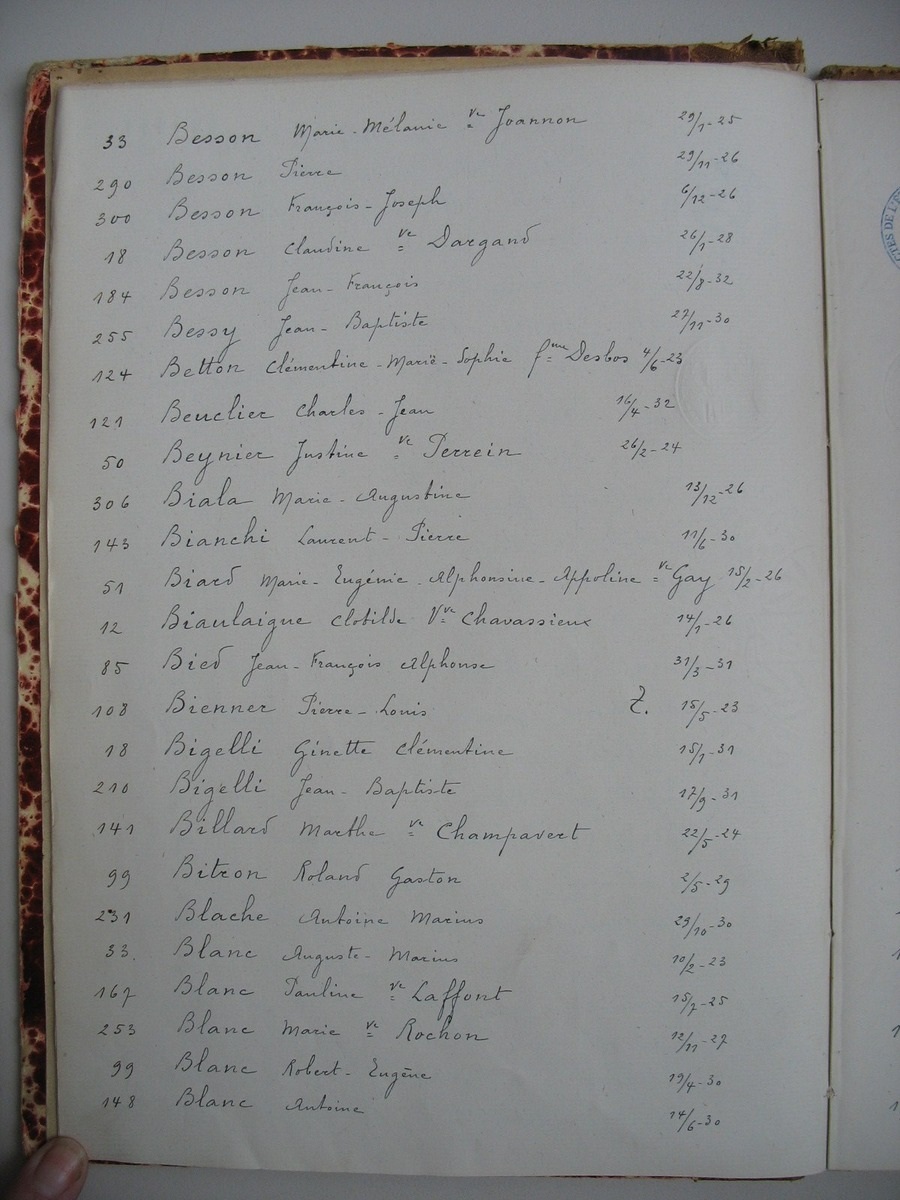 33 Besson Marie-Mélanie Vve Joannon 29/1-25
290 Besson Pierre 29/11-26
300 Besson François-Joseph 6/12-26
18 Besson Claudine Vve Dargaud 26/1-28
184 Besson Jean-François 22/8-32
255 Bessy Jean-Baptiste 27/11-30
124 Betton Clémentine-Marie-Sophie fme Desbos 4/6-23
121 Beuclier Charles-Jean 16/4-32
50 Beynier Justine Vve Perrein 26/2-24
306 Biala Marie-Augustine 13/12-26
143 Bianchi Laurent-Pierre 11/6-30
51 Biard Marie-Eugénie-Alphonsine-Appoline Vve Gay 15/2-26
12 Biaulaigue Clotilde Vve Chavassieux 14/1-26
85 Bied Jean-François Alphonse 31/3-31
108 Bienner Pierre-Louis Z. 15/5-23
18 Bigelli Ginette Clémentine 15/1-31
210 Bigelli Jean-Baptiste 17/9-31
141 Billard Marthe Vve Champavert 22/5-24
99 Bitron Roland Gaston 2/5-29
231 Blache Antoine Marius 23/10-30
33. Blanc Auguste-Marius 10/2-23
167 Blanc Pauline Vve Laffont 15/7-25
253 Blanc Marie Vve Rochon 12/11-27
99 Blanc Robert-Eugène 19/4-30
148 Blanc Antoine 14/6-30